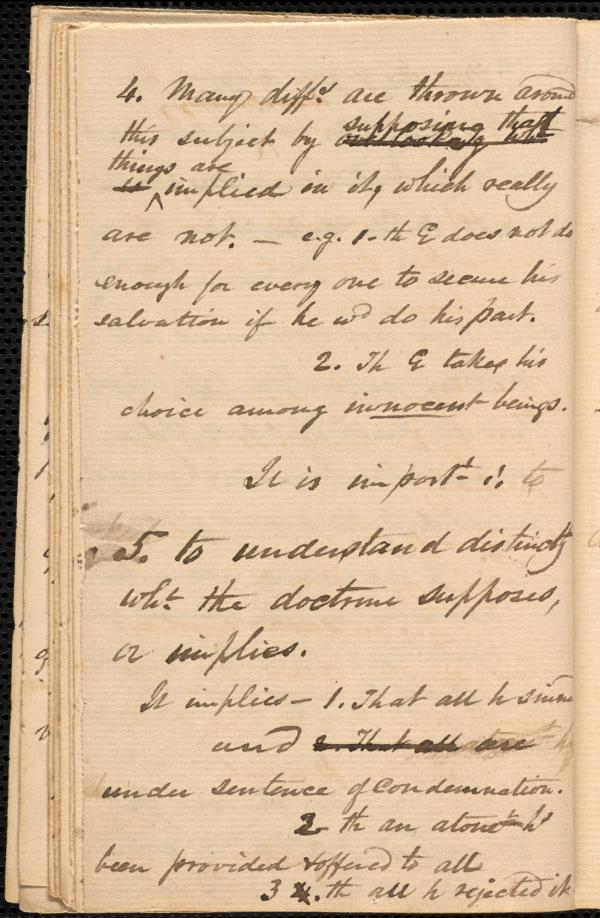 4. Many diffs. are thrown around
this subject by supposing that
things are
implied in it, which really
are not. — e.g. 1 - th G does not do
enough for every one to secure his
salvation if he wd do his part.
2. Th G takes his
choice among innocent beings.
It is import-t to
5. to understand distinctly
wht the doctrine supposes,
or implies.
It implies — 1. That all h sinned
and 2. That all are
under sentence of condemnation.
2 th an atonet h
been provided & offered to all
3 4. th all h rejected it